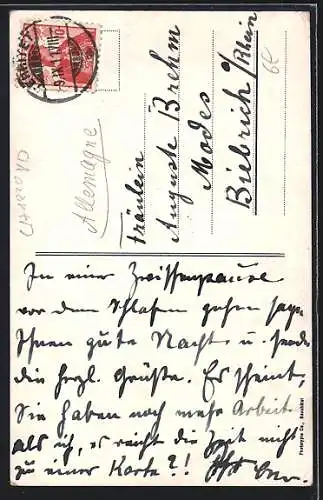 Allemagne
Fräulein
Auguste Brehm
Modes
Biebrich a/Rhein
In einer Zwischenpause
vor dem Schlafen gehen sage
Ihnen gute Nacht u. sende
die herzl. Grüße. Es scheint,
Sie haben noch mehr Arbeit
als ich, es reicht die Zeit nicht
zu einer Karte?!
6€
CH1820VD